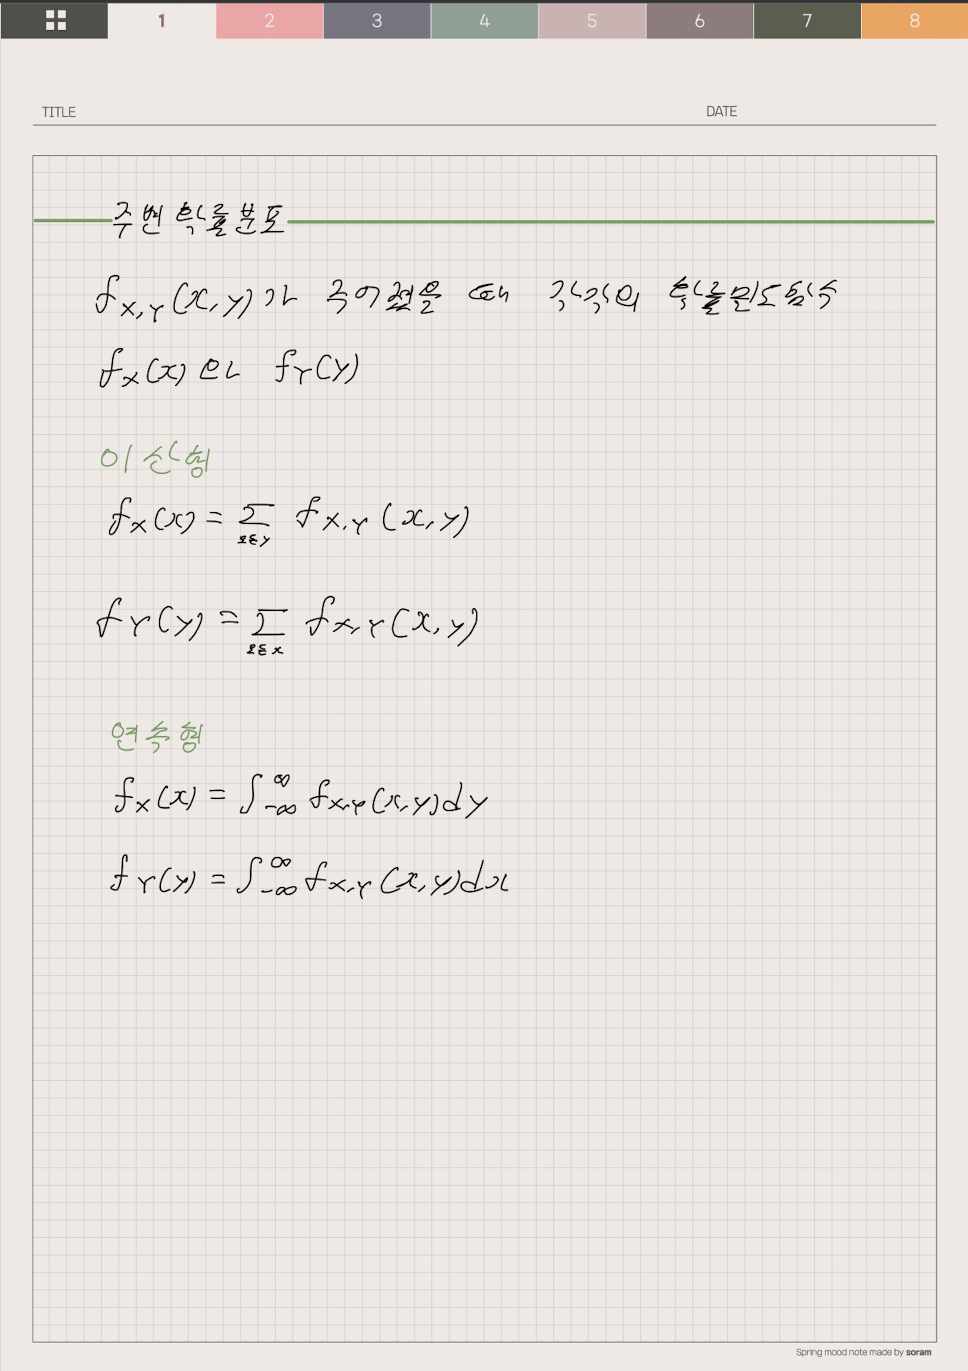 1 2 3 4 5 6 7 8
TITLE DATE
주변 확률분포
f_{X,Y}(x,y)가 주어졌을 때 각각의 확률밀도함수
f_X(x) 와 f_Y(y)
이산형
f_X(x) = ∑_{모든 y} f_{X,Y}(x,y)
f_Y(y) = ∑_{모든 x} f_{X,Y}(x,y)
연속형
f_X(x) = ∫_{-∞}^{∞} f_{X,Y}(x,y)dy
f_Y(y) = ∫_{-∞}^{∞} f_{X,Y}(x,y)dx
Spring mood note made by soram